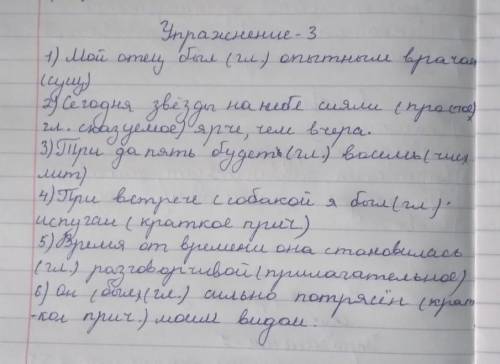 Упражнение-3
1) Мой отец был (гл.) опытным врачом
(сущ)
2) Сегодня звёзды на небе сияли (простое
гл. сказуемое) ярче, чем вчера.
3) Три да пять будет (гл.) восемь (числ
лит)
4) При встрече с собакой я был (гл.)
испуган (краткое прич.)
5) Время от времени она становилась
(гл.) разговорчивой (прилагательное)
6) Он (был) (гл.) сильно потрясён (крат
-кое прич.) моим видом.